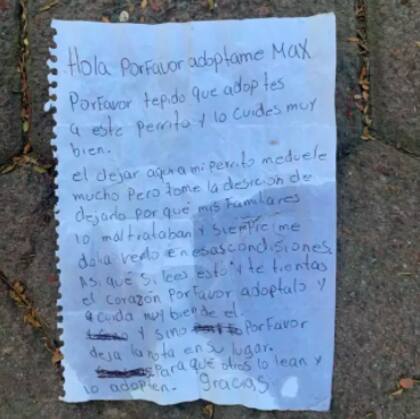 Hola PorFavor adoptame Max
PorFavor tepido que adoptes
a este perrito y lo cuides muy
bien.
el dejar aqui a mi perrito me duele
mucho pero tome la desicion de
dejarlo por qué mis familares
lo maltrataban y siempre me
dolia verlo en esas condisiones.
Asi que si lees esto y te tientas
el corazón PorFavor adoptalo y
cuida muy bien de el.
y sino PorFavor
deja la nota en su lugar.
Para que otros lo lean y
lo adopten. Gracias